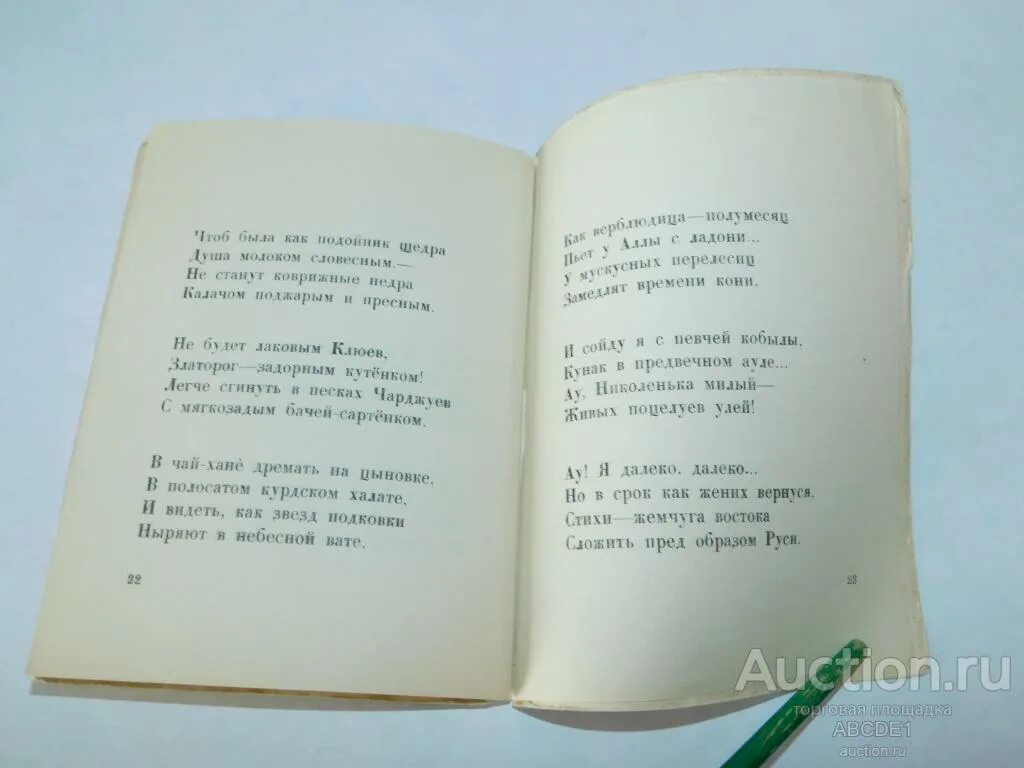 Чтоб была как подойник щедра
Душа молоком словесным.—
Не станут коврижные недра
Калачом поджарым и пресным.
Не будет лаковым Клюев,
Златорог—задорным кутёнком!
Легче сгинуть в песках Чарджуев
С мягкозадым бачей-сартёнком.
В чай-ханѐ дремать на цыновке,
В полосатом курдском халате,
И видеть, как звезд подковки
Ныряют в небесной вате.
22
Как верблюдица—полумесяц
Пьет у Аллы с ладони...
У мускусных перелесиц
Замедлят времени кони.
И сойду я с певчей кобылы,
Кунак в предвечном ауле...
Ау, Николенька милый—
Живых поцелуев улей!
Ау! Я далеко, далеко...
Но в срок как жених вернуся,
Стихи—жемчуга востока
Сложить пред образом Руси.
23
Auction.ru
торговая площадка
ABCDE1
auction.ru